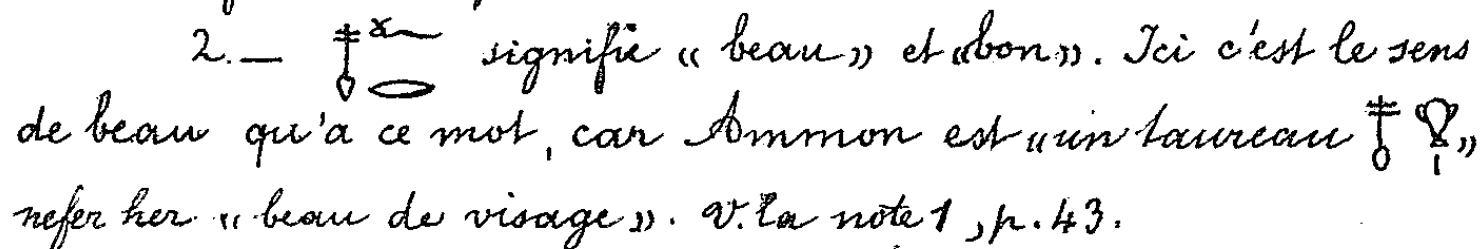 2. — 𓄤𓆑𓂋 signifie « beau » et « bon ». Ici c'est le sens
de beau qu'a ce mot, car Ammon est « un taureau 𓄤 𓁷𓏤 »
nefer her « beau de visage ». V. la note 1, p. 43.